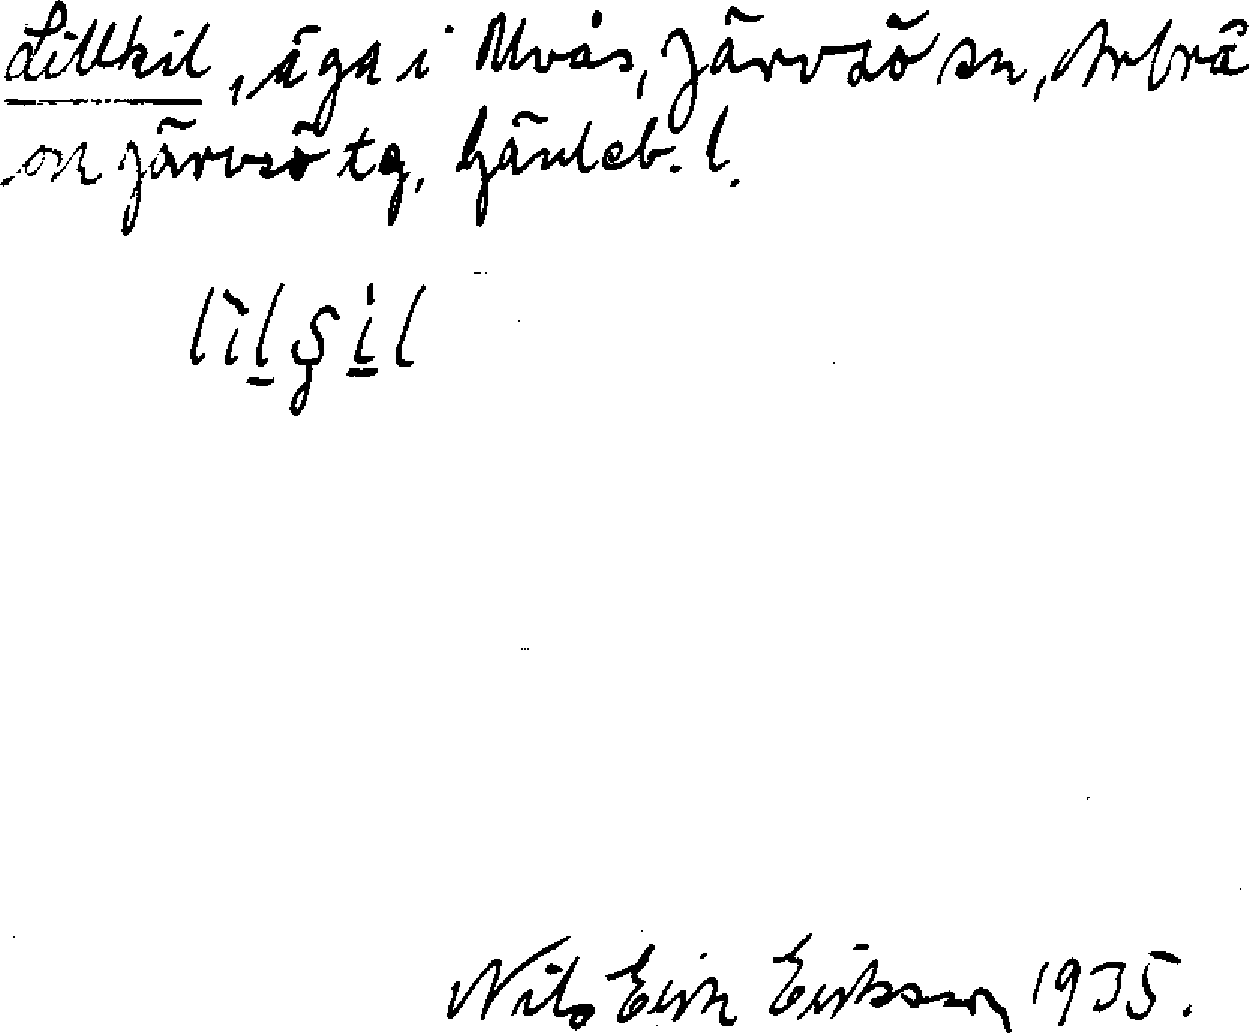 Lillkil, äga i Nvås, Järvsö sn, Arbrå
on Järvsö tg, Gävleb. l.
lìlşil
Nils Erik Eriksson 1935.